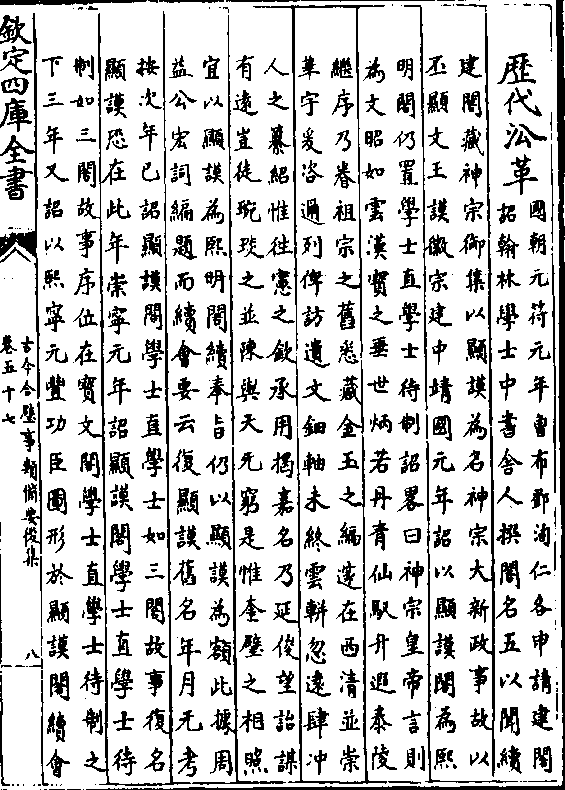 歴代㳂革
國朝元符元年曾布鄧洵仁各申請建閣
詔翰林學士中書舍人撰閣名五以聞續
建閣藏神宗御集以顯謨為名神宗大新政事故以
丕顯文王謨徽宗建中靖國元年詔以顯謨閣為熙
明閣仍置學士直學士待制詔畧曰神宗皇帝言則
為文昭如雲漢寳之垂世炳若丹青仙馭升遐泰陵
繼序乃眷祖宗之舊悉藏金玉之編蓬在西清並崇
華宇爰咨邇列俾訪遺文鈿軸未終雲軿忽逺肆冲
人之纂紹惟往憲之欽承用揭嘉名乃延俊望詒謀
有逺豈徒琬琰之並陳與天无窮是惟奎璧之相照
宜以顯謨為熙明閣續奉旨仍以顯謨為額此據周
益公宏詞編題而續會要云復顯謨舊名年月无考
按次年已詔顯謨閣學士直學士如三閣故事復名
顯謨恐在此年崇寧元年詔顯謨閣學士直學士待
制如三閣故事序位在寳文閣學士直學士待制之
下三年又詔以熙寧元豐功臣圖形於顯謨閣續會
欽定四庫全書
古今合璧事類備要後集
卷五十七
八